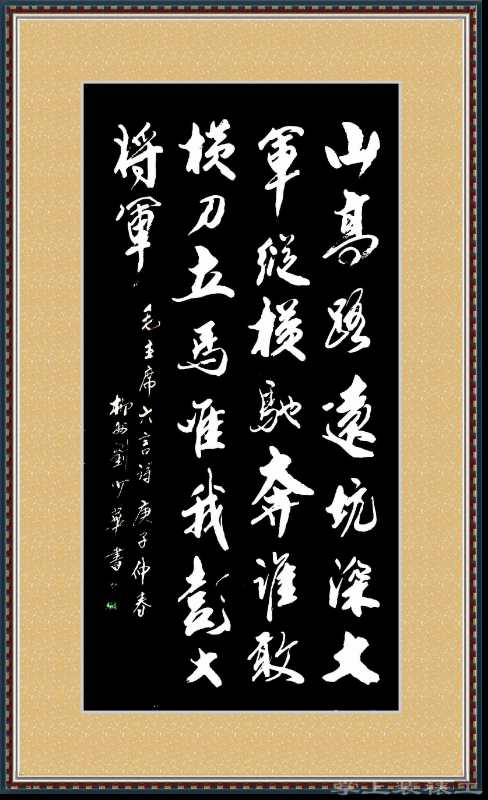 山高路遠坑深大
軍縱橫馳奔誰敢
橫刀立馬唯我彭大
將軍
毛主席六言詩 庚子仲春
柳州劉少華書
掌上装裱工